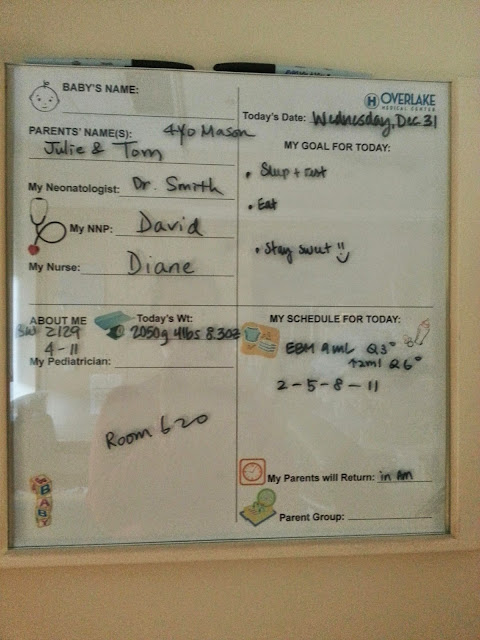 BABY'S NAME:
PARENTS' NAME(S): 4YO Mason
Julie & Tom
My Neonatologist: Dr. Smith
My NNP: David
My Nurse: Diane
OVERLAKE
MEDICAL CENTER
Today's Date: Wednesday, Dec 31
MY GOAL FOR TODAY:
• Sleep + rest
• Eat
• Stay sweet
ABOUT ME
BW 2129
4-11
Today's Wt:
2050g 4lbs 8.3oz
My Pediatrician:
Room 620
BABY
MY SCHEDULE FOR TODAY:
EBM 9mL Q3°
↑2ml Q6°
2-5-8-11
My Parents will Return: in AM
Parent Group: